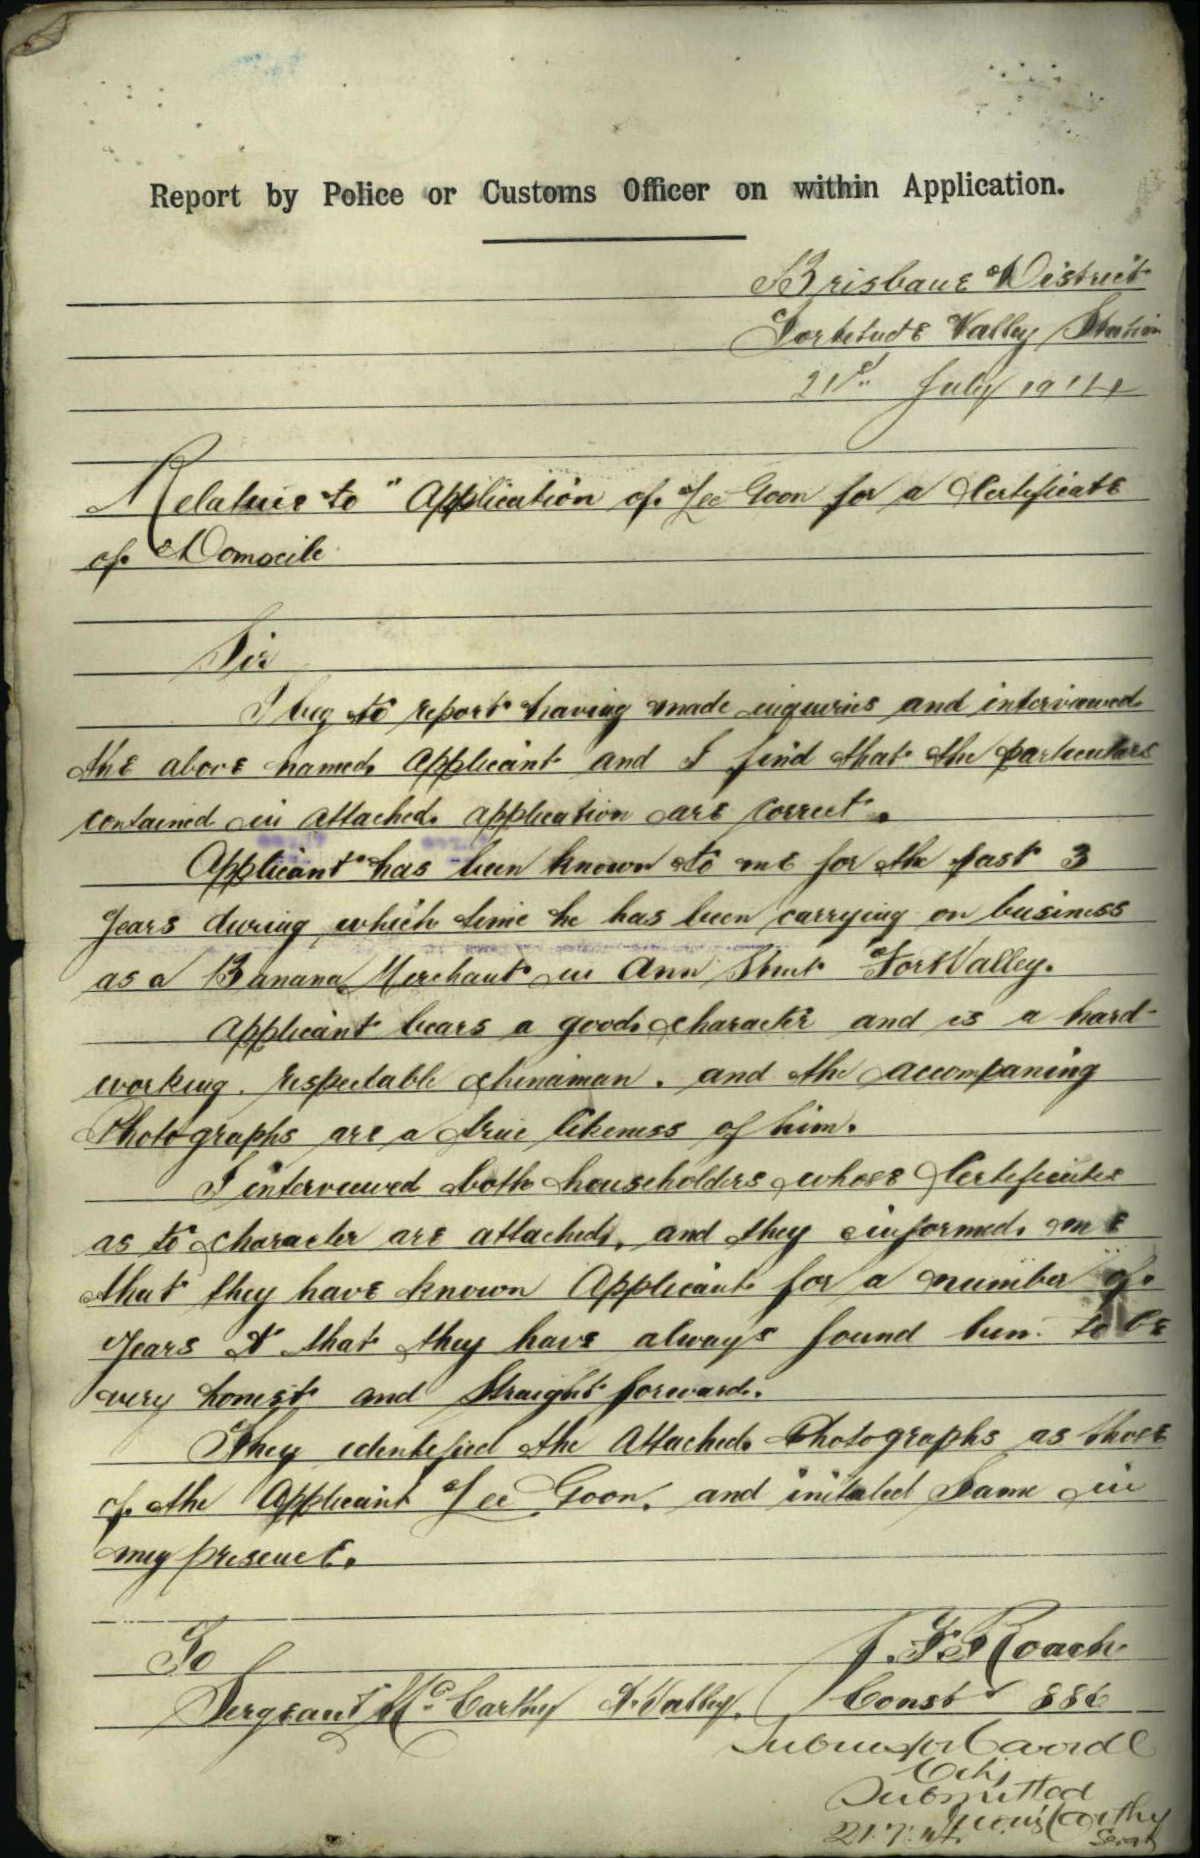 Report by Police or Customs Officer on within Application.
Brisbane District
Fortitude Valley Station
21st July 1914
Relative to "Application of Lee Goon for a Certificate
of Domocile
Sir
I beg to report having made inquiries and interviewed
the above named Applicant and I find that the particulars
contained in attached application are correct.
Applicant has been known to me for the past 3
years during which time he has been carrying on business
as a Banana Merchant in Ann Street Fort Valley.
Applicant bears a good character and is a hard-
working. respectable chinaman. and the accompaning
Photographs are a true likeness of him.
I interviewed both householders whose Certificates
as to character are attached, and they informed me
that they have known Applicant for a number of
years & that they have always found him to be
very honest and straight forward.
They identified the attached Photographs as those
of the Applicant Lee Goon. and initaled same in
my presence.
To
J. F. Roach
Sergeant McCarthy F. Valley.
Const 886
Submitted
McCarthy
21.7.14
Sergt